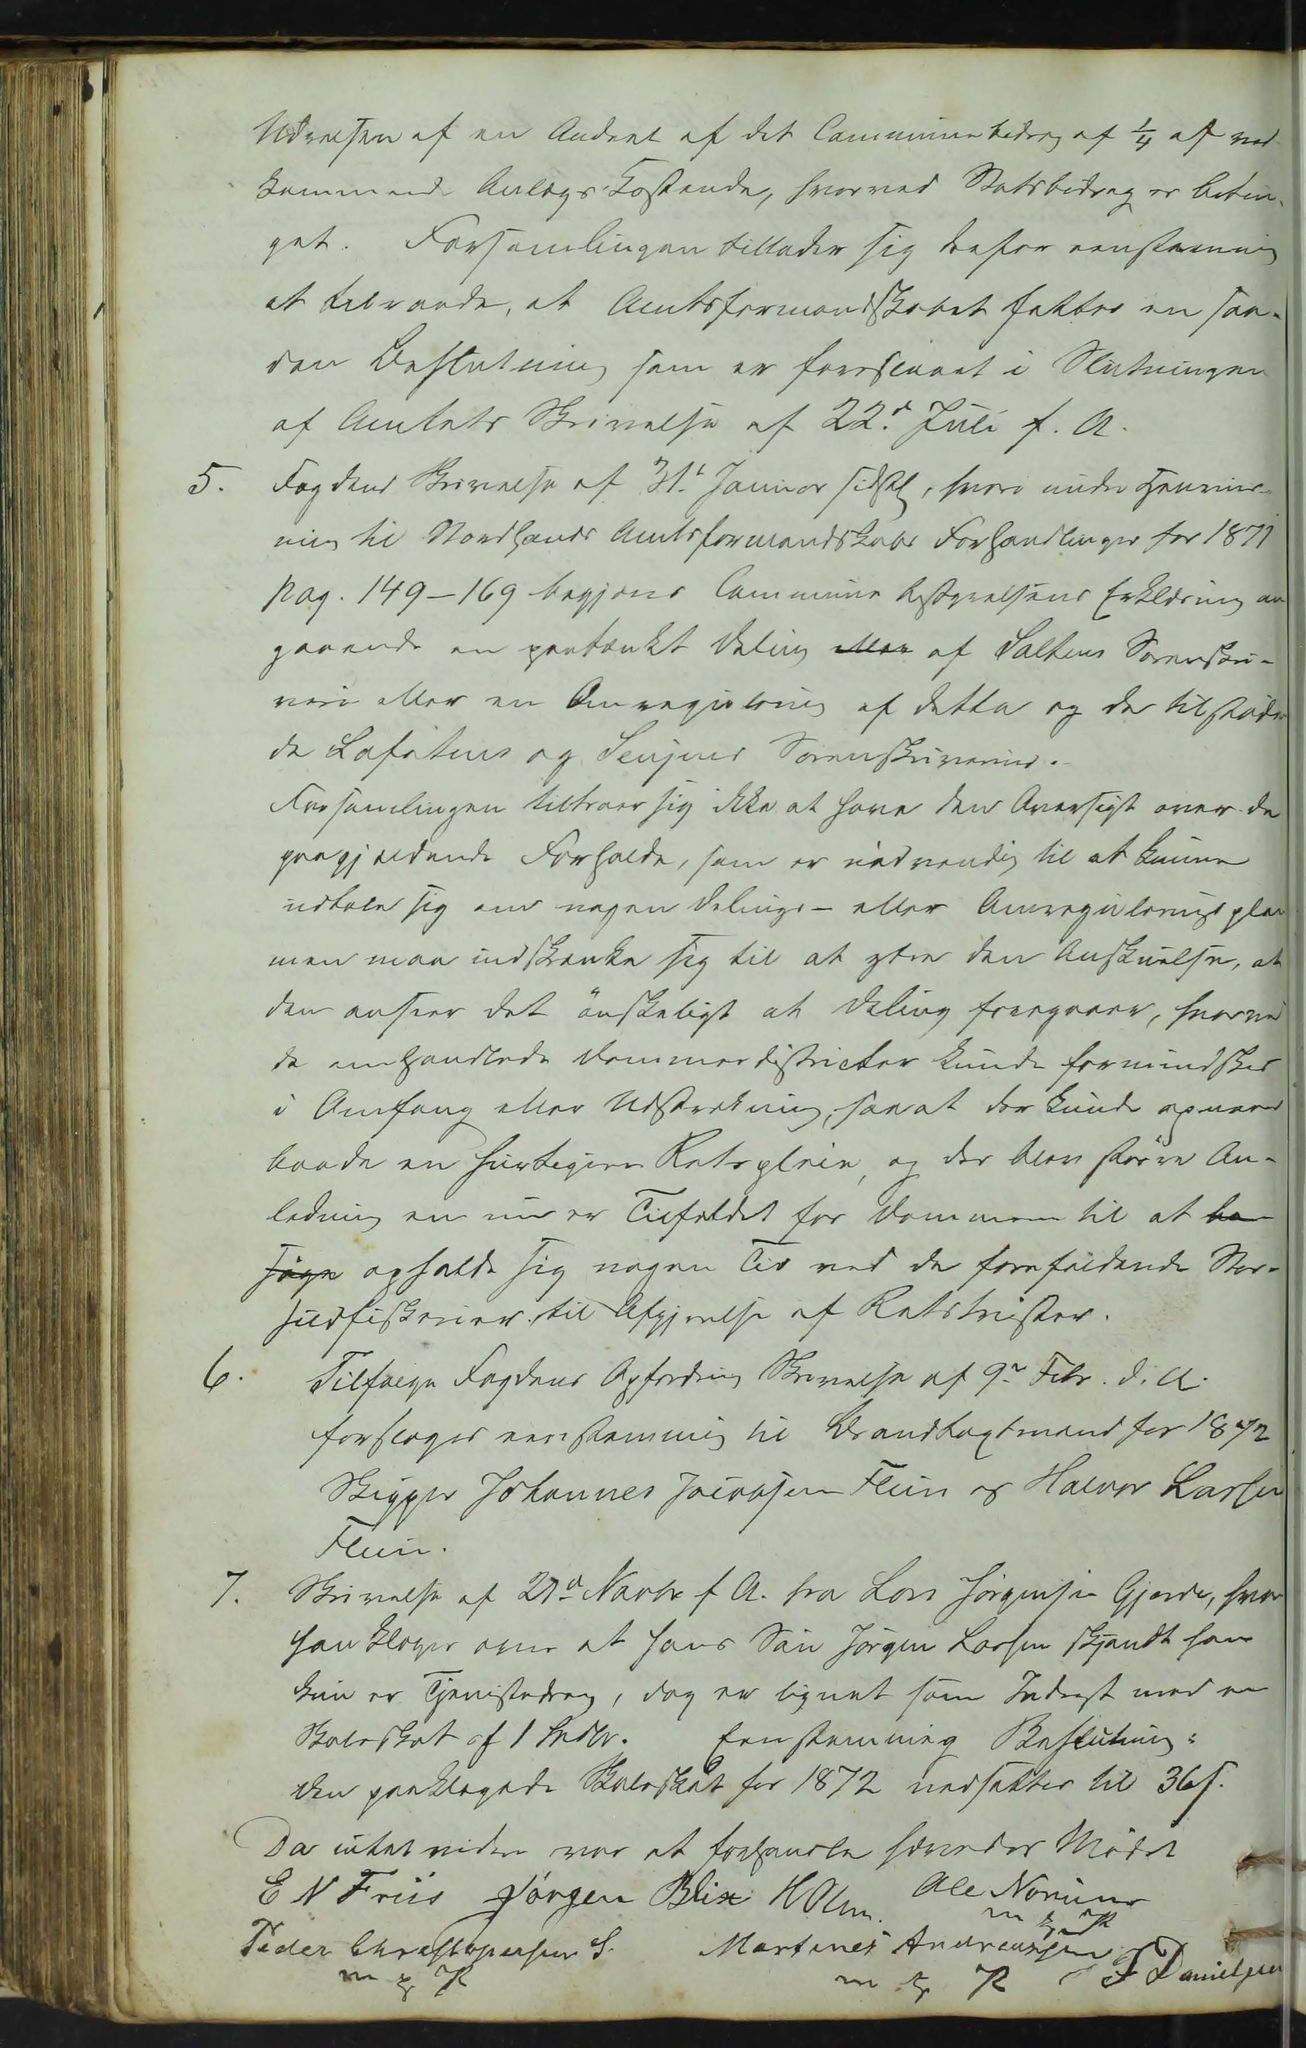 Udredsen af en Andeel af det Communebidrag af 1/4 af ved-
kommende Anlægs Kostende, hvorved Statsbidrag er betin-
get. Forsamlingen tillader sig derfor eenstemmig
at tilraade, at Amtsformandskabet fatter en saa-
dan Beslutning som er foreslaaet i Slutningen
af Amtets Skrivelse af 22d Juli f. A.
5. Fogdens Skrivelse af 31t Januar sidstl, hvori under Henviis-
ning til Nordlands Amtsformandskabs Forhandlinger for 1871
pag. 149-169 begjæres Communebestyrelsens Erklæring an-
gaaende en paatænkt Deling eller af Saltens Sorenskri-
veri eller en Omregulering af dette og de tilstøden
de Lofotens og Senjens Sorenskriverier.
Forsamlingen tiltroer sig ikke at have den Oversigt over de
paagjældende Forholde, som er nødvendig til at kunne
udtale sig om nogen Delings- eller Omreguleringsplan
men maa indskrænke sig til at yttre den Anskuelse, at
den anseer det ønskeligt at Deling foregaaer, hvorved
de omhandlede Dommerdistricter kunde formindskes
i Omfang eller Udstrækning, saaat der kunde opnaaes
baade en hurtigere Retspleie, og der blev større An-
ledning en nu er Tilfældet for Dommeren til at be
søge opholde sig nogen Tid ved de forefaldende Stor-
sildfiskerier til Afgjørelse af Retstvister.
6. Tilfølge Fogdens Opfordring Skrivelse af 9de Febr. d. A.
forslages eenstemmig til Strandtagtmænd for 1872
Skipper Johannes Jacobsen Flein og Halvor Larsen
Flein.
7. Skrivelse af 27d Novbr f A. fra Lars Jørgensen Gjerde, hvor
han klager over at hans Søn Jørgen Larsen skjøndt han
kun er Tjenestedreng, dog er lignet som Inderst med en
Skoleskat af 1 Spdlr. Eenstemmig Beslutning:
Den paaklagede Skoleskat for 1872 nedsættes til 36 s.
Da intet videre var at forhandle hævedes Mødet
E N Friis Jörgen Blix H Olsen. Ole Norum
m p P
Peder Christophersen S. Martines Andreassen F Danielsen
m p P m p P